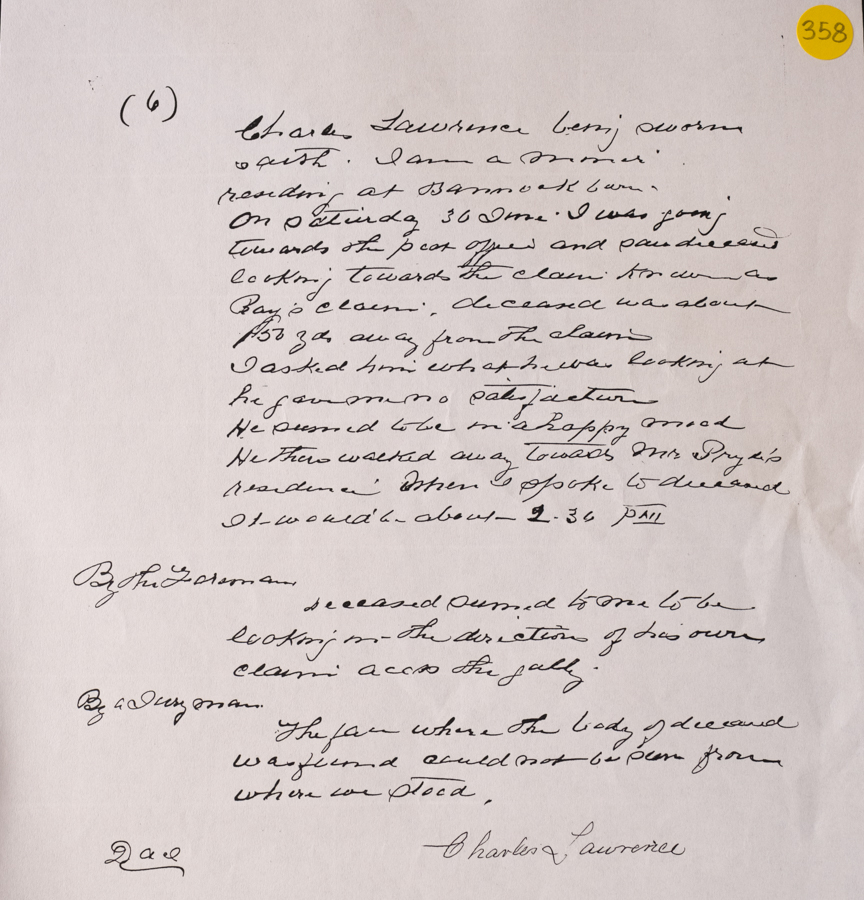 358
(6)
Charles Lawrence being sworn
saith. I am a miner
residing at Bannockburn.
On Saturday 30 June. I was going
towards the post office and saw deceased
looking towards the claim known as
Ray's claim. deceased was about
150 yds away from the claim
I asked him what he was looking at
he gave me no satisfaction
He seemed to be in a happy mood
He then walked away towards Mr Pryde's
residence When I spoke to deceased
It would be about 2.30 PM
By the Foreman
Deceased seemed to me to be
looking in the direction of his own
claim across the gully.
By a Juryman.
The face where the body of deceased
was found could not be seen from
where we stood.
Charles Lawrence